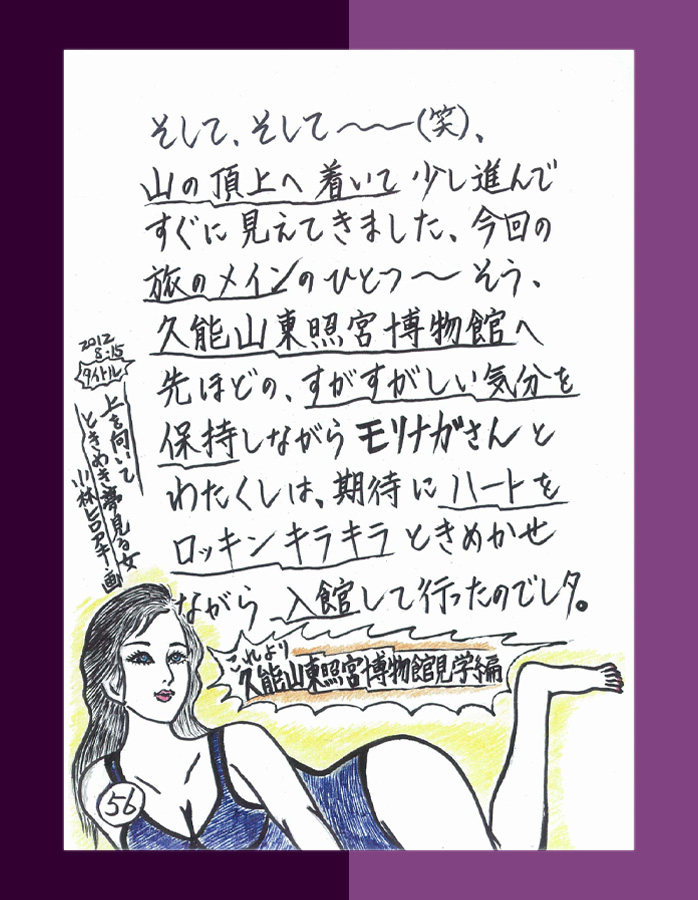 そして、そして〜〜(笑)、
山の頂上へ着いて少し進んで
すぐに見えてきました、今回の
旅のメインのひとつ〜そう、
久能山東照宮博物館へ
先ほどの、すがすがしい気分を
保持しながらモリナガさんと
わたくしは、期待にハートを
ロッキンキラキラときめかせ
ながら入館して行ったのでしタ。
2012
8.15
タイトル
上を向いて
ときめき夢見る女
小林ヒロアキー画
これより
久能山東照宮博物館見学編
56